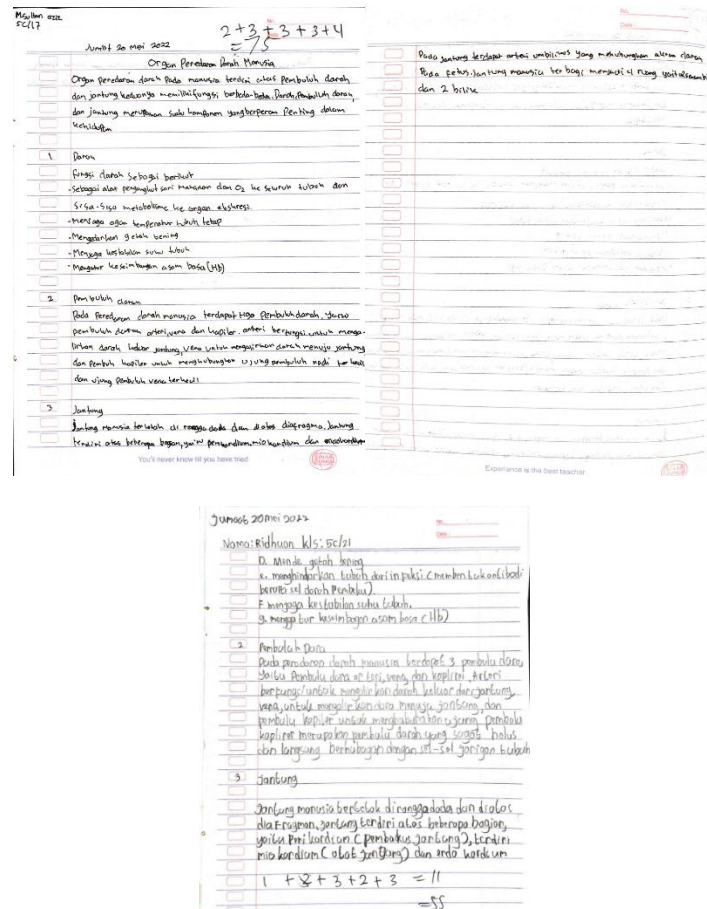 M.Sultan aziz
5C/17
2+3+3+3+4
= 75
No.
Date.
Jumat 20 mei 2022
Organ Peredaran Darah Manusia
Organ Peredaran darah Pada manusia terdiri atas Pembuluh darah
dan jantung keduanya memiliki fungsi berbeda-beda. Darah, Pembuluh darah,
dan jantung merupakan suatu komponen yang berperan Penting dalam
kehidupan
1 Darah
fungsi darah sebagai berikut
-Sebagai alat pengangkut sari makanan dan O2 ke seluruh tubuh dan
sisa-sisa metabolisme ke organ ekskresi
-menjaga agar temperatur tubuh tetap
-Mengedarkan getah bening
-Menjaga kestabilan suhu tubuh
-Mengatur keseimbangan asam basa (Hb)
2 Pembuluh darah
Pada Peredaran darah manusia terdapat tiga Pembuluh darah, yaitu
pembuluh darah arteri, vena dan kapiler. arteri berfungsi untuk menga-
lirkan darah keluar jantung, vena untuk mengalirkan darah menuju jantung
dan pembuh kapiler untuk menghubungkan ujung pembuluh nadi terkecil
dan ujung Pembuluh vena terkecil
3 Jantung
Jantung manusia terletak di rongga dada dan diatas diafragma, Jantung
terdiri atas beberapa bagian, yaitu perikardium, miokardium dan endokardium
You'll never know till you have tried
No.
Date.
Pada jantung terdapat arteri umbilikus yang menghubungkan aliran darah
Pada fetus. Jantung manusia terbagi menjadi 4 ruang yaitu 2 serambi
dan 2 bilik
Experience is the best teacher
Jumaat 20 mei 2022
No.
Date.
Nama: Ridhuan kls: 5c/21
D. getah bening
e. menghindarkan tubuh dari inpeksi (memben tuk antibodi
berupa sel darah Pembeku).
F menjaga kestabilan suhu tubuh.
g. menggatur keseimbangan asam basa (Hb)
2 Pembuluh Dara
Pada peredaran darah manusia terdapat 3 pembulu dara,
yaitu Pembulu dara arteri, vena, dan kapliri. Arteri
berpungsi untuk mengalirkan darah keluar dari jantung,
vena, untuk mengalirkan dara menuju jantung, dan
pembulu kapiler untuk ujung pembulu
kapliret merupakan pembulu darah yang sagat halus
dan langsung berhubagan dengan sel-sel jarigan tubuh
3 jantung
Jantung manusia terletak dirongga dada dan diatas
diafragman, jantung terdiri atas beberapa bagian,
yaitu Perikardium (pembukus jantung), terdiri
miokardium (otot jantung) dan endo kardium
1 + 2 + 3 + 2 + 3 = 11
= 55